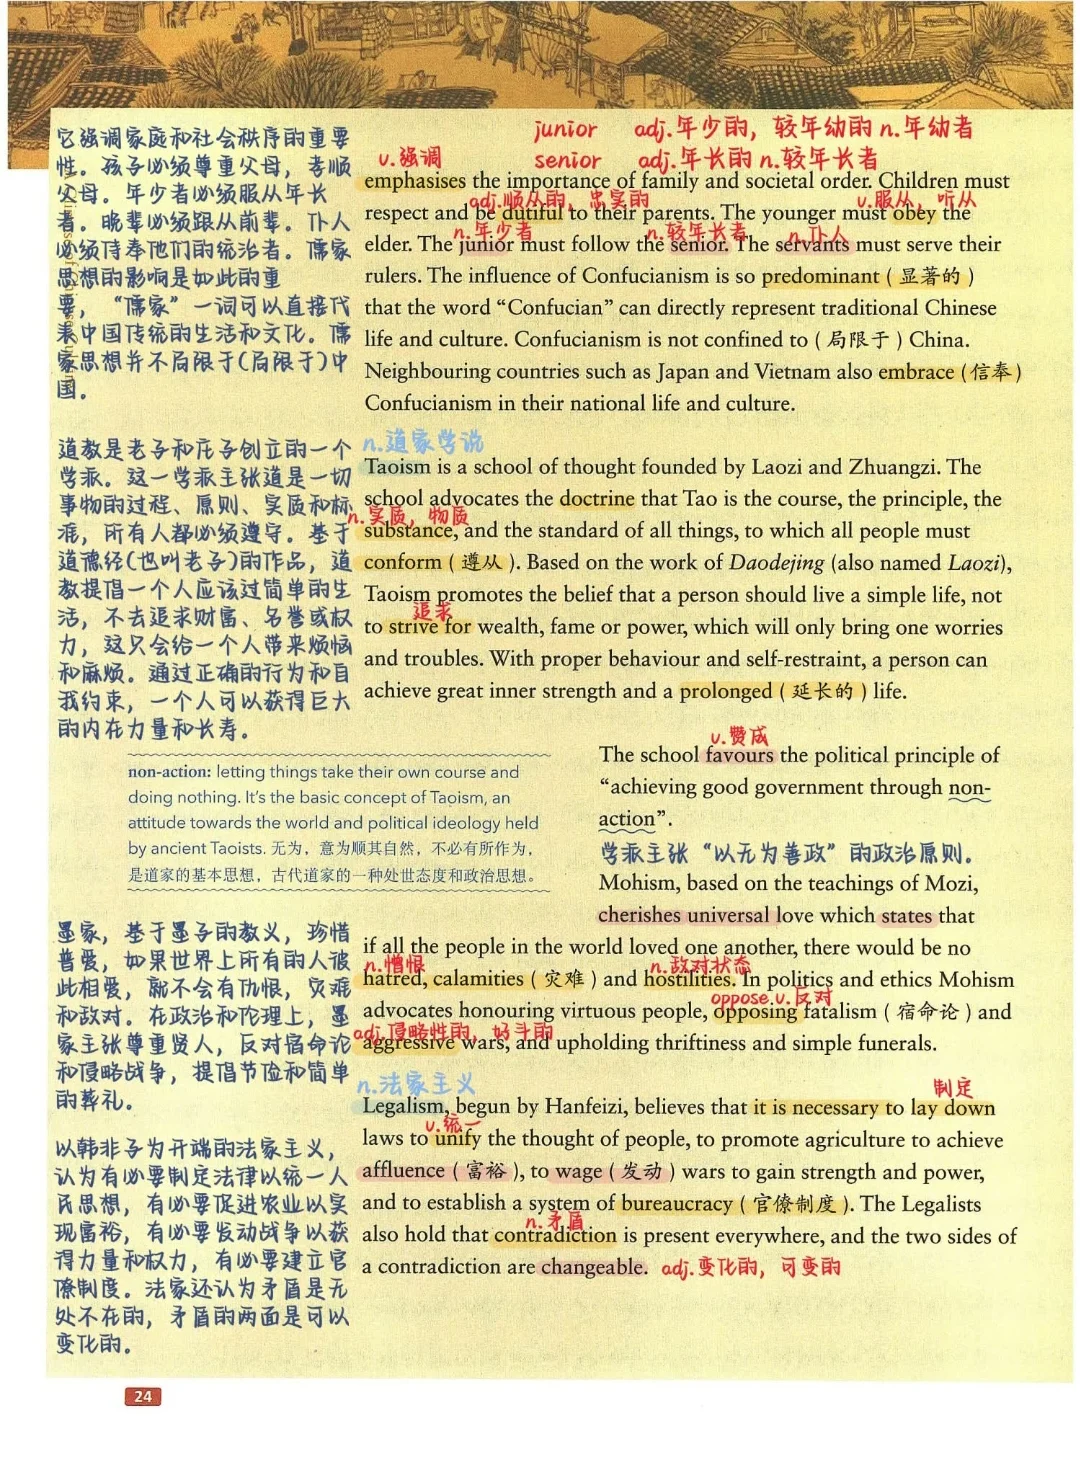 junior adj.年少的，较年幼的 n.年幼者
senior adj.年长的 n.较年长者
v.强调
emphasises the importance of family and societal order. Children must
adj.顺从的，忠实的 v.服从，听从
respect and be dutiful to their parents. The younger must obey the
n.年少者 n.较年长者 n.仆人
elder. The junior must follow the senior. The servants must serve their
rulers. The influence of Confucianism is so predominant（显著的）
that the word “Confucian” can directly represent traditional Chinese
life and culture. Confucianism is not confined to（局限于）China.
Neighbouring countries such as Japan and Vietnam also embrace（信奉）
Confucianism in their national life and culture.
它强调家庭和社会秩序的重要
性。孩子必须尊重父母，孝顺
父母。年少者必须服从年长
者。晚辈必须跟从前辈。仆人
必须侍奉他们的统治者。儒家
思想的影响是如此的重
要，“儒家”一词可以直接代
表中国传统的生活和文化。儒
家思想并不局限于(局限于)中
国。
n.道家学说
Taoism is a school of thought founded by Laozi and Zhuangzi. The
school advocates the doctrine that Tao is the course, the principle, the
n.实质，物质
substance, and the standard of all things, to which all people must
conform（遵从）. Based on the work of Daodejing (also named Laozi),
Taoism promotes the belief that a person should live a simple life, not
追求
to strive for wealth, fame or power, which will only bring one worries
and troubles. With proper behaviour and self-restraint, a person can
achieve great inner strength and a prolonged（延长的）life.
道教是老子和庄子创立的一个
学派。这一学派主张道是一切
事物的过程、原则、实质和标
准，所有人都必须遵守。基于
道德经(也叫老子)的作品，道
教提倡一个人应该过简单的生
活，不去追求财富、名誉或权
力，这只会给一个人带来烦恼
和麻烦。通过正确的行为和自
我约束，一个人可以获得巨大
的内在力量和长寿。
non-action: letting things take their own course and
doing nothing. It's the basic concept of Taoism, an
attitude towards the world and political ideology held
by ancient Taoists. 无为，意为顺其自然，不必有所作为，
是道家的基本思想，古代道家的一种处世态度和政治思想。
v.赞成
The school favours the political principle of
“achieving good government through non-
action”.
学派主张“以无为善政”的政治原则。
Mohism, based on the teachings of Mozi,
cherishes universal love which states that
if all the people in the world loved one another, there would be no
n.憎恨 n.敌对状态
hatred, calamities（灾难）and hostilities. In politics and ethics Mohism
oppose.v.反对
advocates honouring virtuous people, opposing fatalism（宿命论）and
adj.侵略性的，好斗的
aggressive wars, and upholding thriftiness and simple funerals.
墨家，基于墨子的教义，珍惜
普爱，如果世界上所有的人彼
此相爱，就不会有仇恨，灾难
和敌对。在政治和伦理上，墨
家主张尊重贤人，反对宿命论
和侵略战争，提倡节俭和简单
的葬礼。
n.法家主义 制定
Legalism, begun by Hanfeizi, believes that it is necessary to lay down
v.统一
laws to unify the thought of people, to promote agriculture to achieve
affluence（富裕）, to wage（发动）wars to gain strength and power,
and to establish a system of bureaucracy（官僚制度）. The Legalists
n.矛盾
also hold that contradiction is present everywhere, and the two sides of
a contradiction are changeable. adj.变化的，可变的
以韩非子为开端的法家主义，
认为有必要制定法律以统一人
民思想，有必要促进农业以实
现富裕，有必要发动战争以获
得力量和权力，有必要建立官
僚制度。法家还认为矛盾是无
处不在的，矛盾的两面是可以
变化的。
24